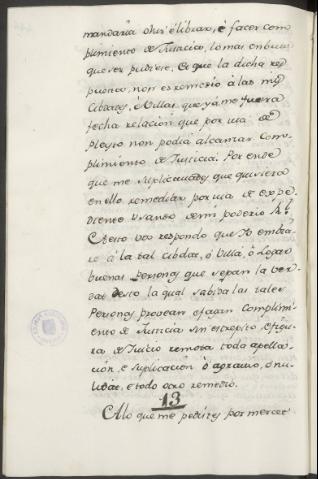 mandaria ohir è librar, è facer com
plimiento de Justicia, lo mas en breve
que ser pudiere, è que la dicha res
puesta, non es remedio à las mis
Cibdades, è Villas que yá me fuera
fecha relacion que por via de
pleyto non podia alcanzar Com
plimiento de Justicia. Por ende
que me suplicavades que quisiera
en ello remediar por via de expe
diente usando de mi poderio Rl.
A esto vos respondo que Yo embia
ré à la tal cibdat, ò Villa, ò Logar
buenas Personas que sepan la ver
dat desto la qual sabida las tales
Personas provean è fagan complimi
ento de Justicia sin estrepito è figu
ra de Juicio remota toda apella
cion, è suplicacion ò agravio, ò nu
lidat, è todo otro remedio.
13
A lo que me pedistes por merced